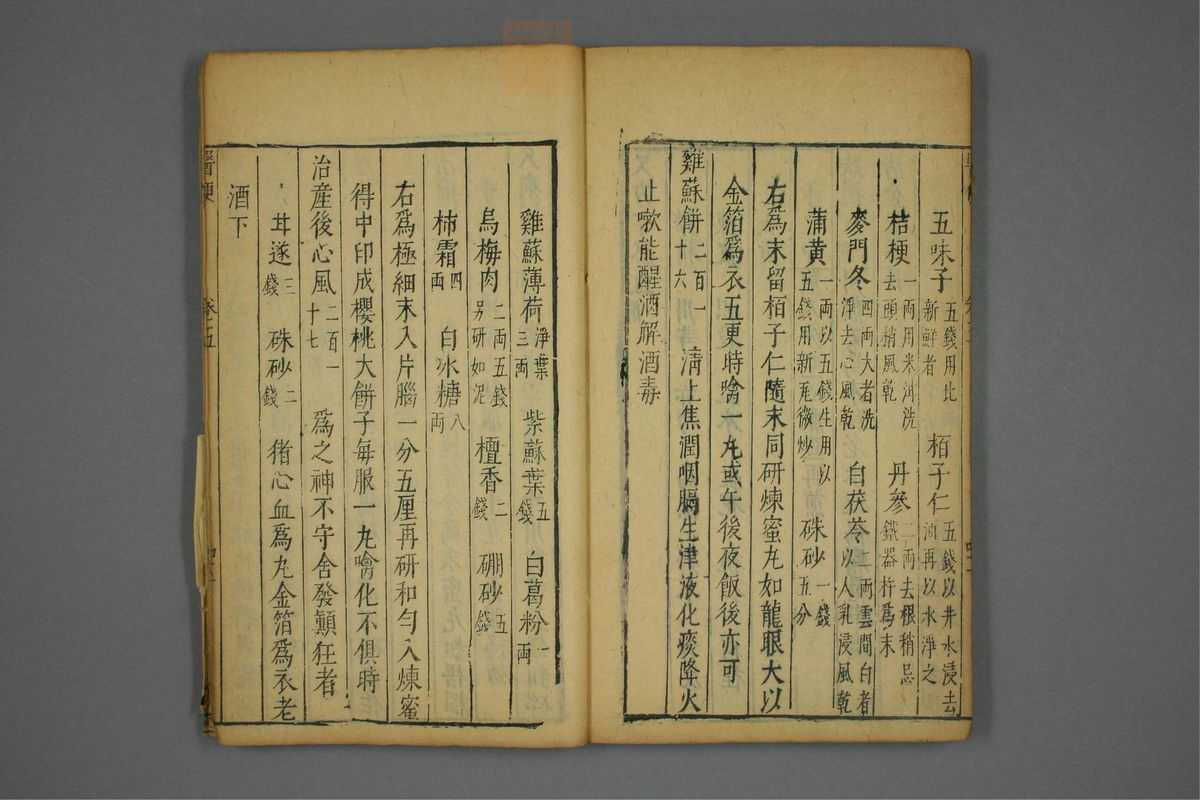 五味子五錢用北新鮮者 栢子仁五錢以井水浸去油再以水淨之
桔梗一兩用米泔洗去頭稍風乾 丹參二兩去根稍忌鐵器杵爲末
麥門冬四兩大者洗淨去心風乾 白茯苓二兩雲間白者以人乳浸風乾
蒲黃一兩以五錢生用以五錢用新瓦微炒 硃砂一錢五分
右爲末留栢子仁隨末同研煉蜜丸如龍眼大以
金箔爲衣五更時噙一丸或午後夜飯後亦可
雞蘇餅二百一十六 淸上焦潤咽膈生津液化痰降火
止嗽能醒酒解酒毒
雞蘇薄荷淨葉三兩 紫蘇葉五錢 白葛粉一兩
烏梅肉二兩五錢另研如泥 檀香二錢 硼砂五錢
柿霜四兩 白冰糖八兩
右爲極細末入片腦一分五厘再研和勻入煉蜜
得中印成櫻桃大餅子每服一丸噙化不俱時
治產後心風二百一十七 爲之神不守舍發顛狂者
甘遂三錢 硃砂二錢 猪心血爲丸金箔爲衣老
酒下
卷五